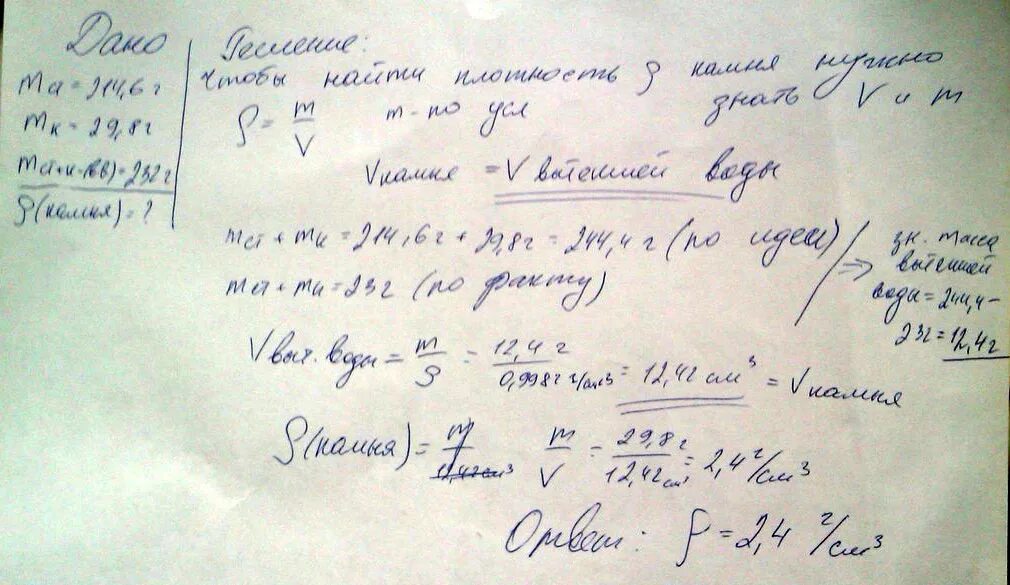 Дано
mст = 214,6 г
mк = 29,8 г
mст+к-(вв) = 232 г
ρ(камня) = ?
Решение:
Чтобы найти плотность ρ камня нужно
знать V и m
ρ = m/V m - по усл
Vкамня = V вытекшей воды
mст + mк = 214,6 г + 29,8 г = 244,4 г (по идеи)
mст + mк = 232 (по факту)
=> зн. масса
вытекшей
воды = 244,4 -
232 = 12,4 г
V выт. воды = m/ρ = 12,4 г / 0,998 г/см³ = 12,42 см³ = Vкамня
ρ(камня) = m/12,42 см³ m/V = 29,8 г / 12,42 см³ = 2,4 г/см³
Ответ: ρ = 2,4 г/см³